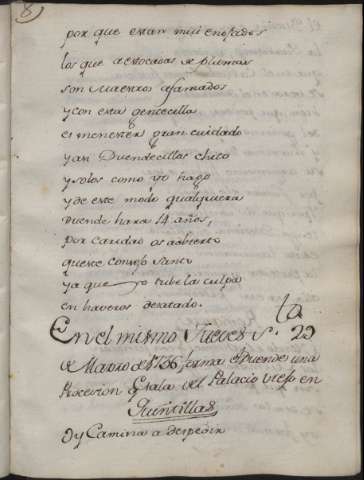 8
por que estan mui enojados
los que a estocadas de plumas
son Maestros afamados
y con esta gentecilla
es menester gran cuidado
y asi Duendecillos chico
y solos como yo hago
y de este modo qualquiera
Duende hara 14 años,
por caridad os advierto
que este Consejo Santo
ya que yo tube la culpa
en haveros desatado.
En el mismo Jueves S. la 29
de Marzo de 1736 forma el Duende una
Procesion q.e sala del Palacio viejo en
Quintillas
Oy Camina a despedir